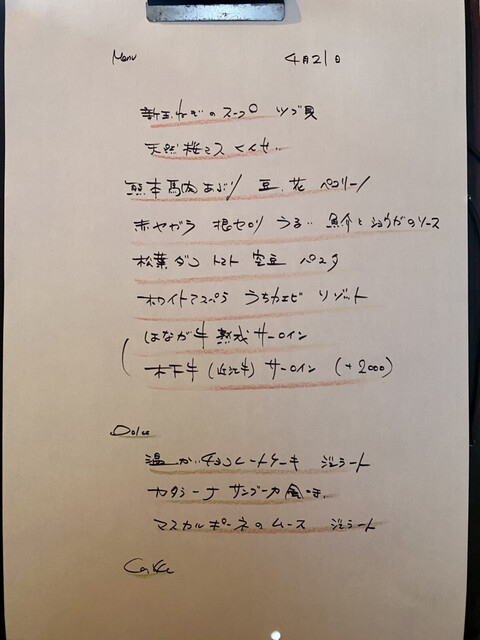 Menu 4月21日
新玉ねぎのスープ ツブ貝
天然桜マス くんせい
熊本馬肉あぶり 豆、花 ペコリーノ
赤ヤガラ 根セロリ うるい 魚介としょうがのソース
松葉ダコ トマト 空豆 パスタ
ホワイトアスパラ うちわエビ リゾット
はなが牛 熟成サーロイン
木下牛 (近江牛) サーロイン (+2000)
Dolce
温かいチョコレートケーキ ジェラート
カタラーナ サンブーカ風味
マスカルポーネのムース ジェラート
Caffe